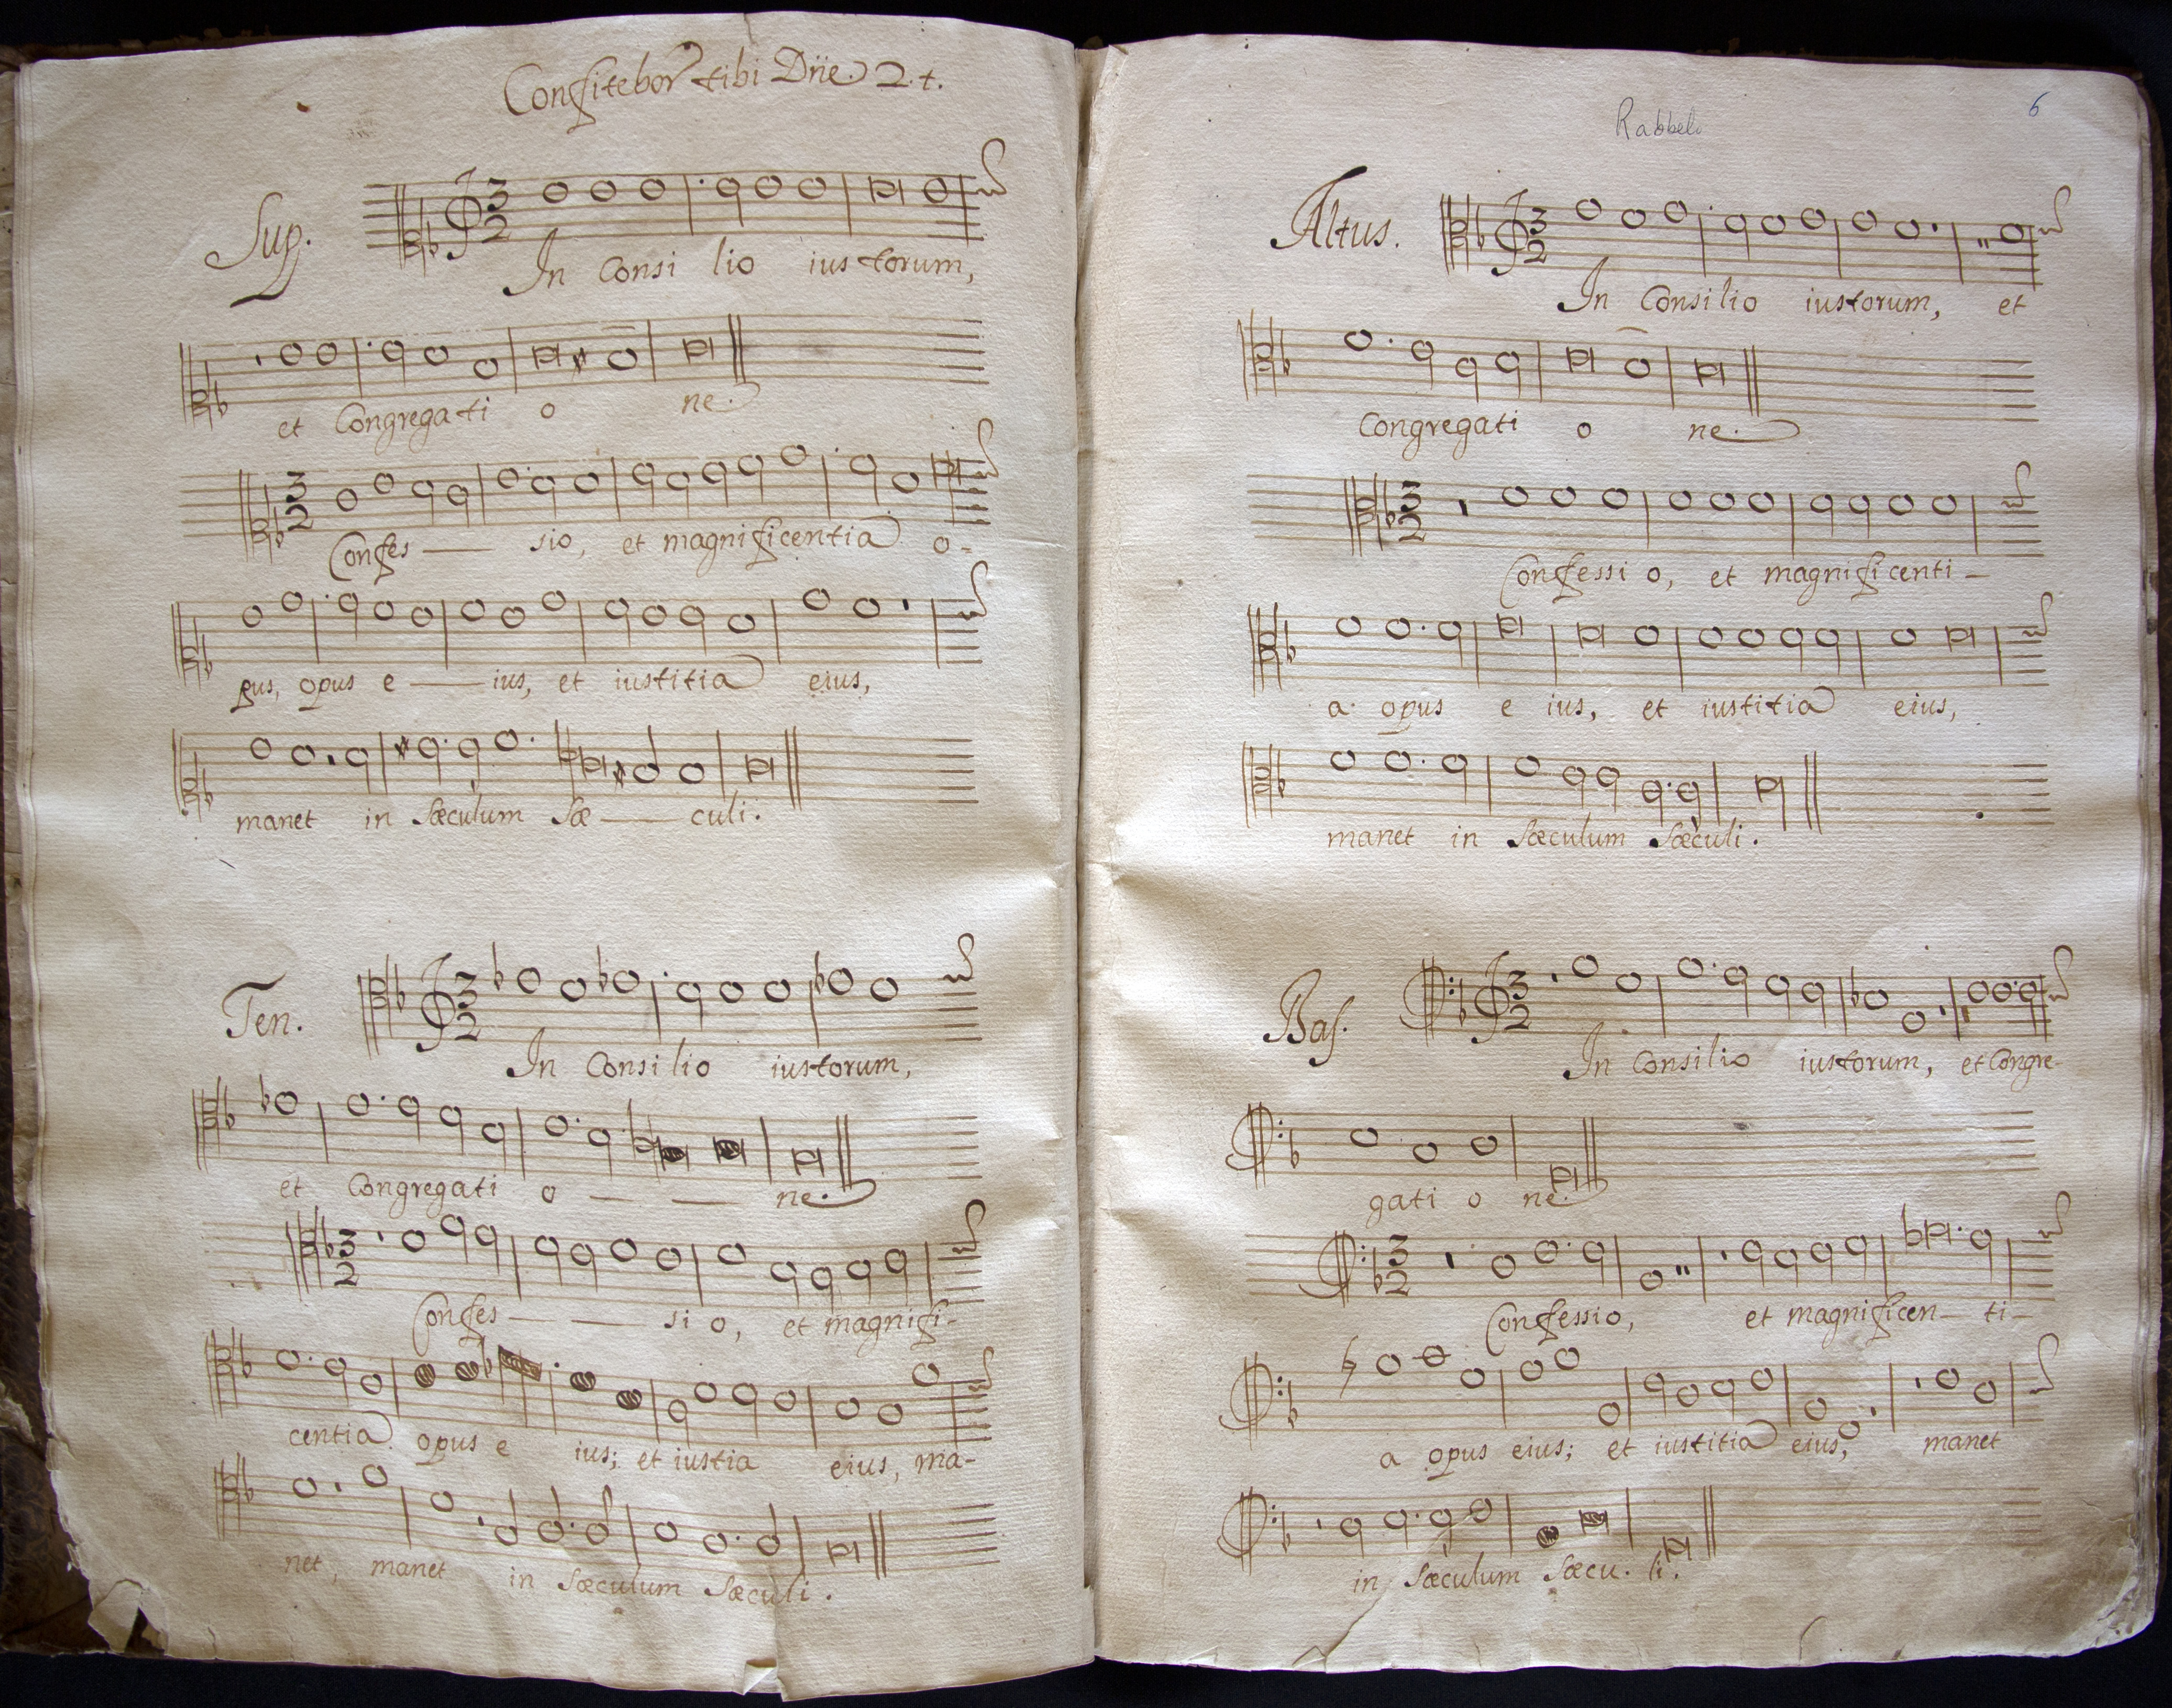 Confitebor tibi Dñe. 2. t.
Sup.
3
2
In Consi lio iustorum,
et Congregati o ne.
3
2
Confes — sio, et magnificentia o-
pus, opus e — ius, et iustitia eius,
manet in sæculum sæ — culi.
Ten.
3
2
In Consilio iustorum,
et Congregati o — — ne.
3
2
Confes — — si o, et magnifi-
centia opus e ius; et iustia eius, ma-
net, manet in sæculum sæculi.
6
Rabbelo
Altus.
3
2
In Consilio iustorum, et
Congregati o ne.
3
2
Confessi o, et magnificenti-
a opus e ius, et iustitia eius,
manet in sæculum sæculi.
Bas.
3
2
In Consilio iustorum, et Congre-
gati o ne.
3
2
Confessio, et magnificen— ti-
a opus eius; et iustitia eius, manet
in sæculum sæcu. li.